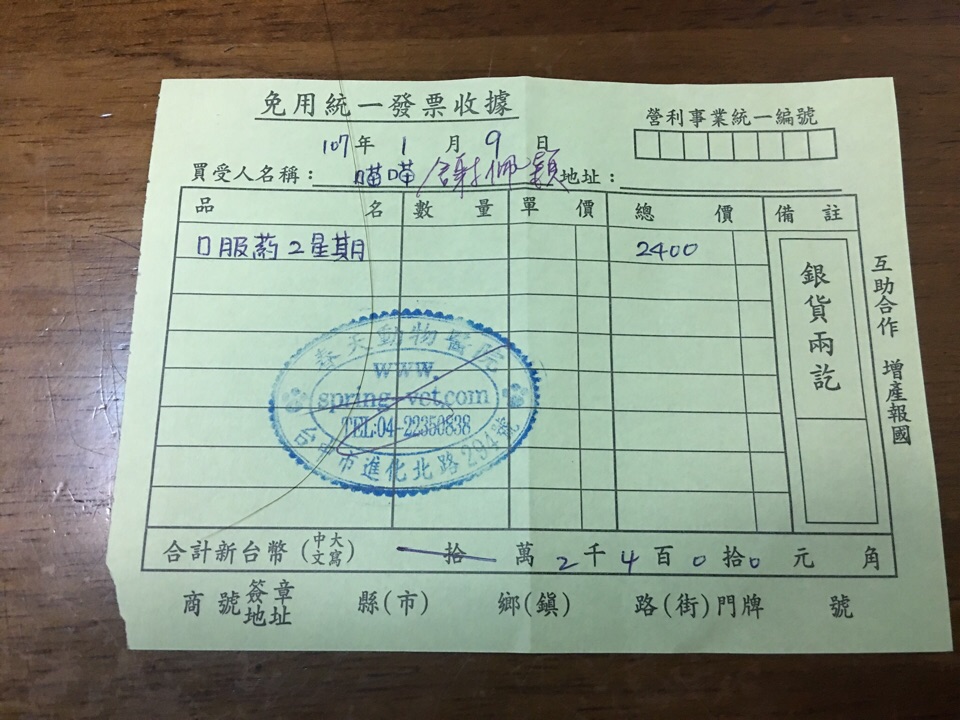 免用統一發票收據
營利事業統一編號
107年 1 月 9 日
買受人名稱：喵喵 謝佩穎 地址：
品名 數量 單價 總價 備註
口服葯2星期 2400
銀貨兩訖
互助合作 增產報國
春天動物醫院
www.
spring-vet.com
TEL:04-22350838
台中市進化北路294號
合計新台幣(中文大寫) 拾 萬 2 千 4 百 0 拾 0 元 角
商號簽章地址 縣(市) 鄉(鎮) 路(街)門牌 號